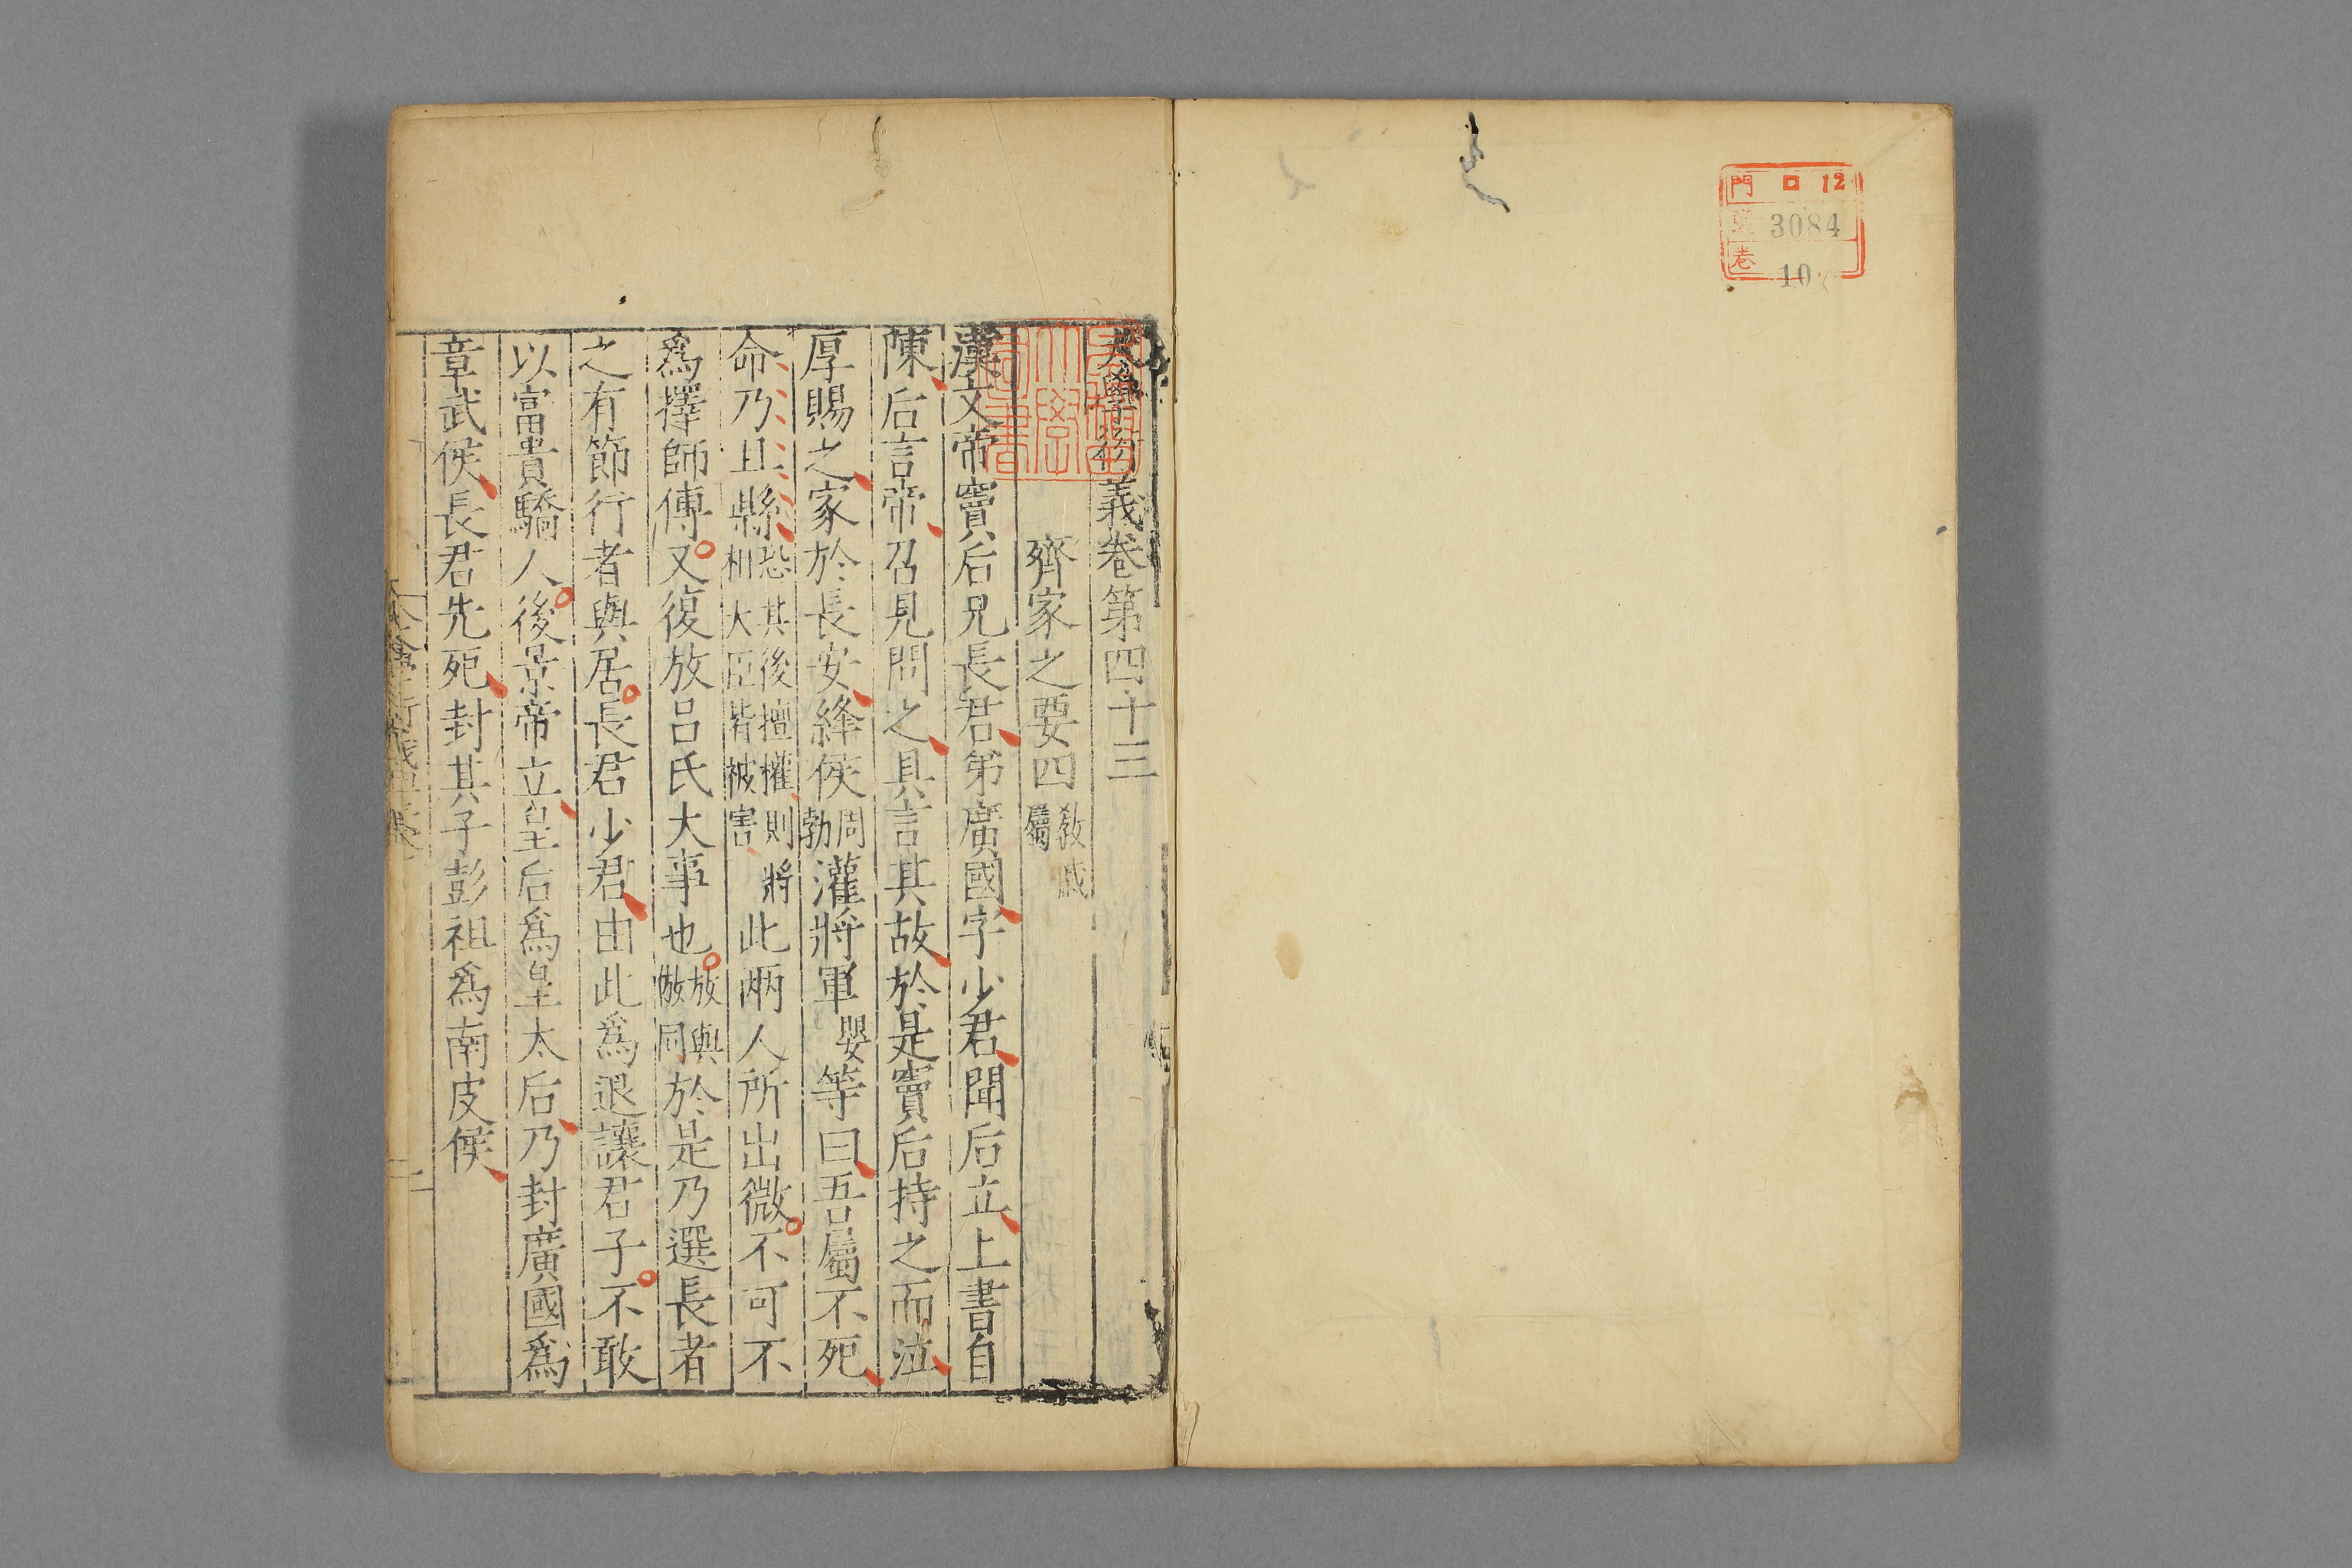 門 ロ 12
號 3084
卷 10
大學衍義卷第四十三
齊家之要四 教戚屬
漢文帝竇后兄長君弟廣國字少君聞后立上書自
陳后言帝召見問之具言其故於是竇后持之而泣
厚賜之家於長安絳侯周勃灌將軍嬰等曰吾屬不死
命乃且縣恐其後擅權則將相大臣皆被害此兩人所出微不可不
爲擇師傅又復放吕氏大事也放與倣同於是乃選長者
之有節行者與居長君少君由此爲退讓君子不敢
以富貴驕人後景帝立皇后爲皇太后乃封廣國爲
章武侯長君先死封其子彭祖爲南皮侯